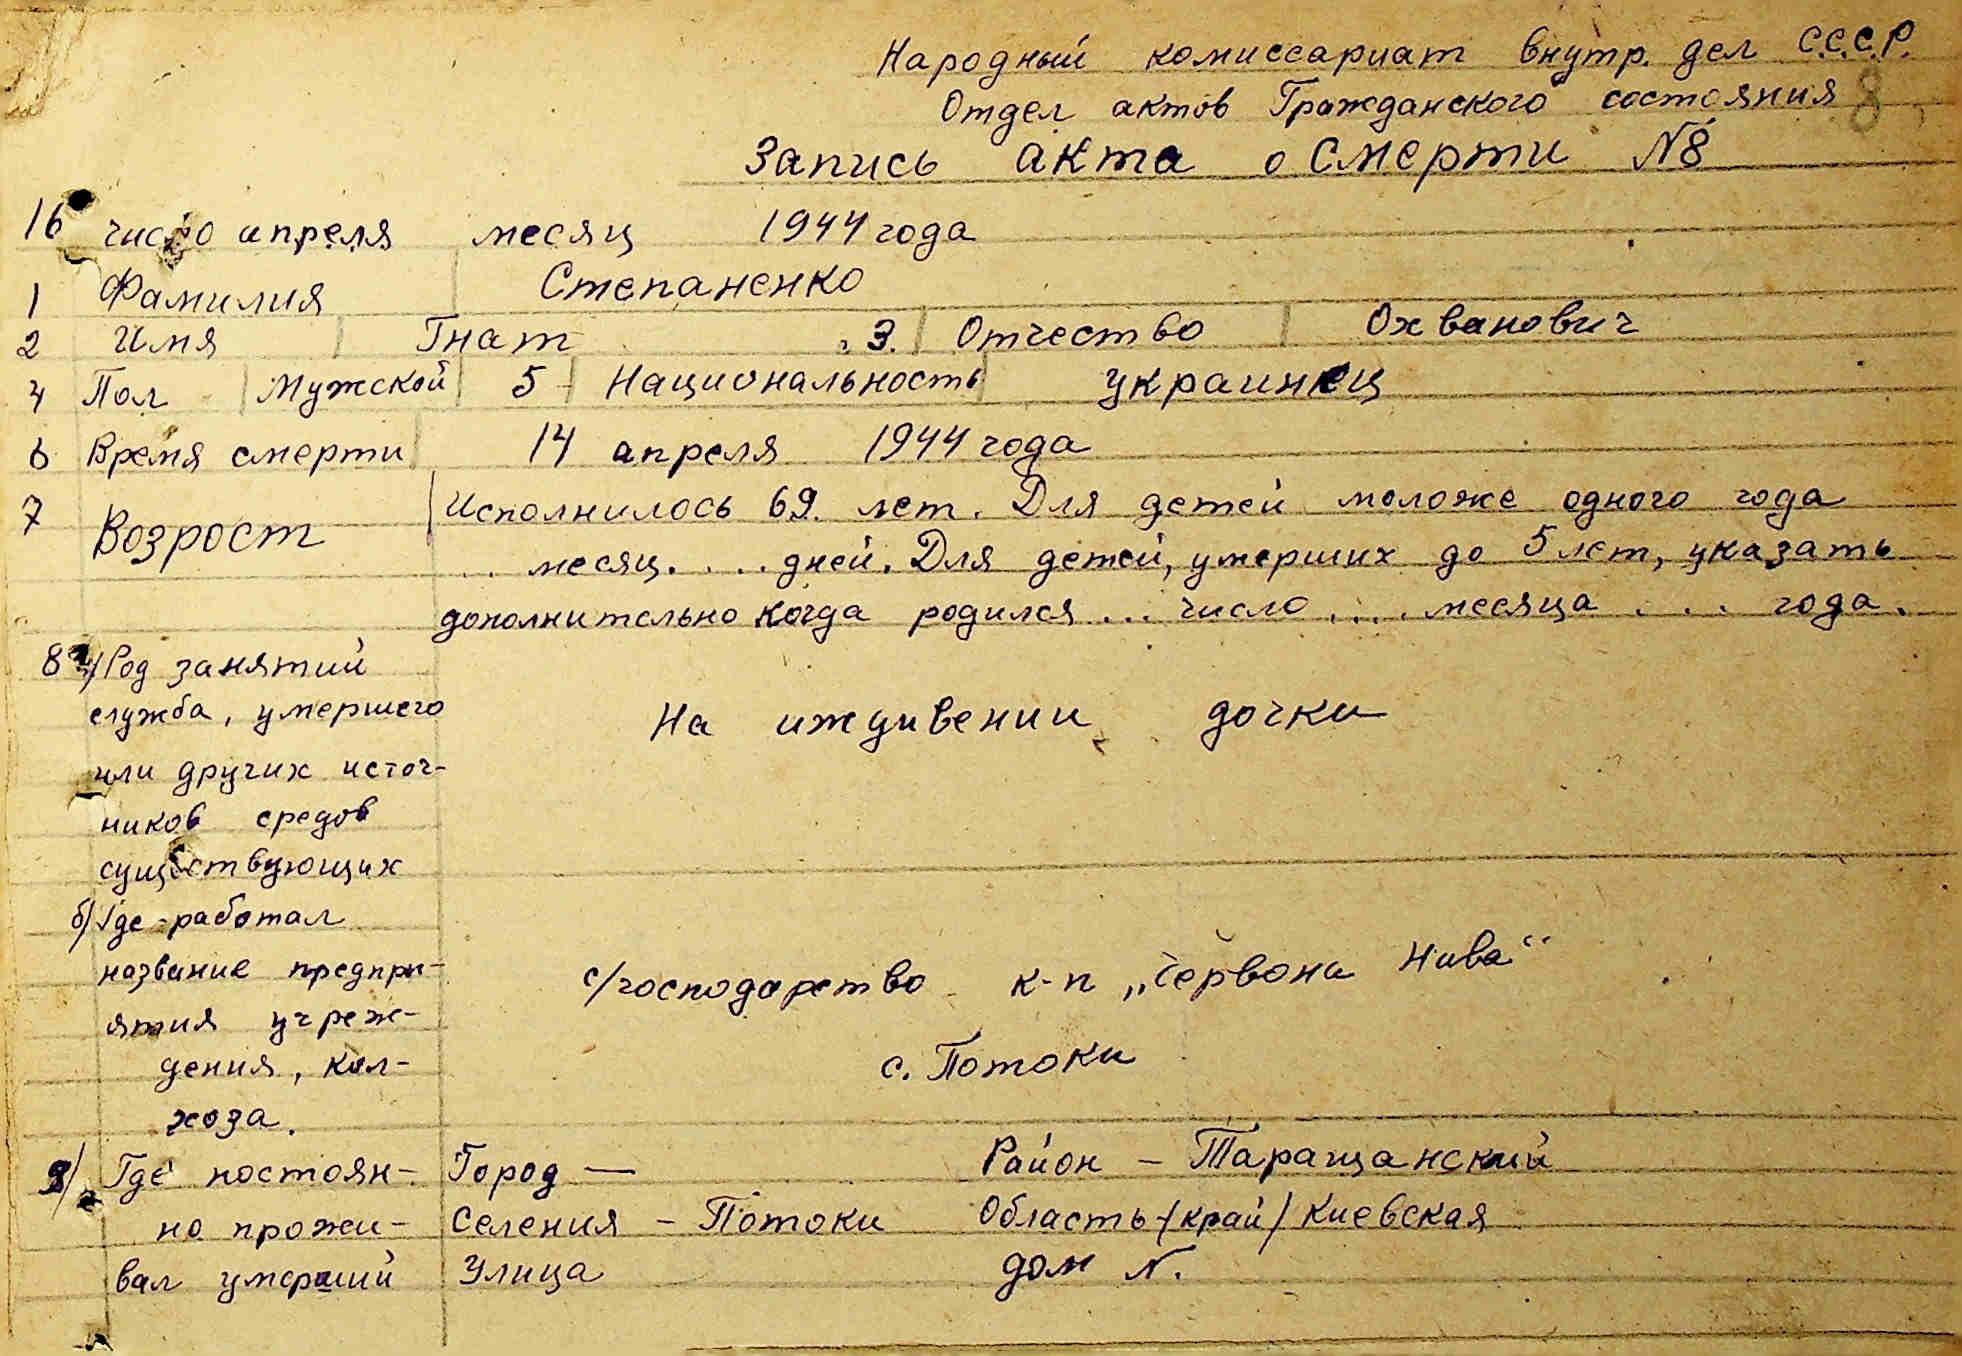 Народный комиссариат внутр. дел С.С.С.Р.
Отдел актов Гражданского состояния 8
Запись акта о смерти N8
16 число апреля месяц 1944 года
1 Фамилия Степаненко
2 Имя Гнат 3. Отчество Охванович
4 Пол Мужской 5 Национальность украинец
6 Время смерти 14 апреля 1944 года
7 Возрост Исполнилось 69. лет. Для детей моложе одного года
.. месяц. ... дней. Для детей, умерших до 5 лет, указать
дополнительно когда родился ... число .... месяца ... года.
8 а/ Род занятий
служба, умершего
или других источ-
ников средов
существующих
На иждивении дочки
б/ Где работал
название предпри-
ятия учреж-
дения, кол-
хоза.
с/господарство к-п „Червона Нива“
с. Потоки
9/ Где постоян- Город — Район - Таращанский
но прожи- Селения - Потоки Область /край/ Киевская
вал умерший Улица дом N.